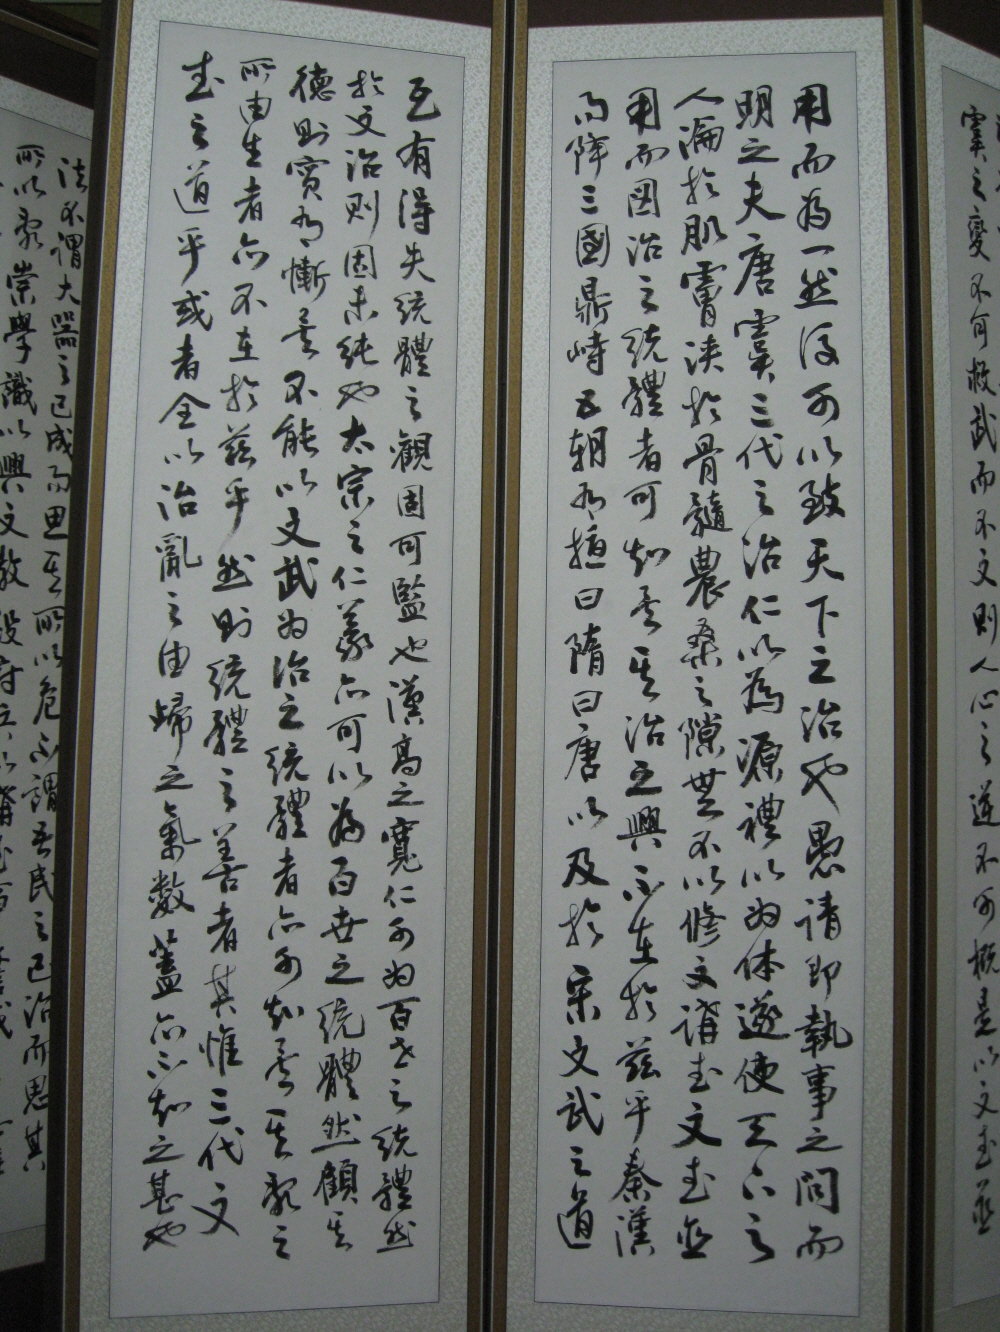 虞之變不可救武而不文則人心之逆不可概是以文武並
用而為一然後可以致天下之治也愚請即執事之問而
明之夫唐虞三代之治仁以為源禮以為体遂使天下之
人淪於肌膚浹於骨髓農桑之隙無不以修文講武文武並
用而圖治之統體者可知矣其治之興亦在於茲乎秦漢
而降三國鼎峙五朝相擅曰隋曰唐以及於宋文武之道
互有得失統體之觀固可監也漢高之寬仁可為百世之統體然
於文治則固未純也太宗之仁義亦可以為百世之統體然顧其
德則實有慚焉不能以文武為治之統體者亦可知矣其亂之
所由生者亦不在於茲乎然則統體之善者其惟三代文
武之道乎或者全以治亂之由歸之氣數蓋亦不知之甚也
法不謂大器之已成而思其所以危不謂吾民之已治而思其
所以亂崇學識以興文教